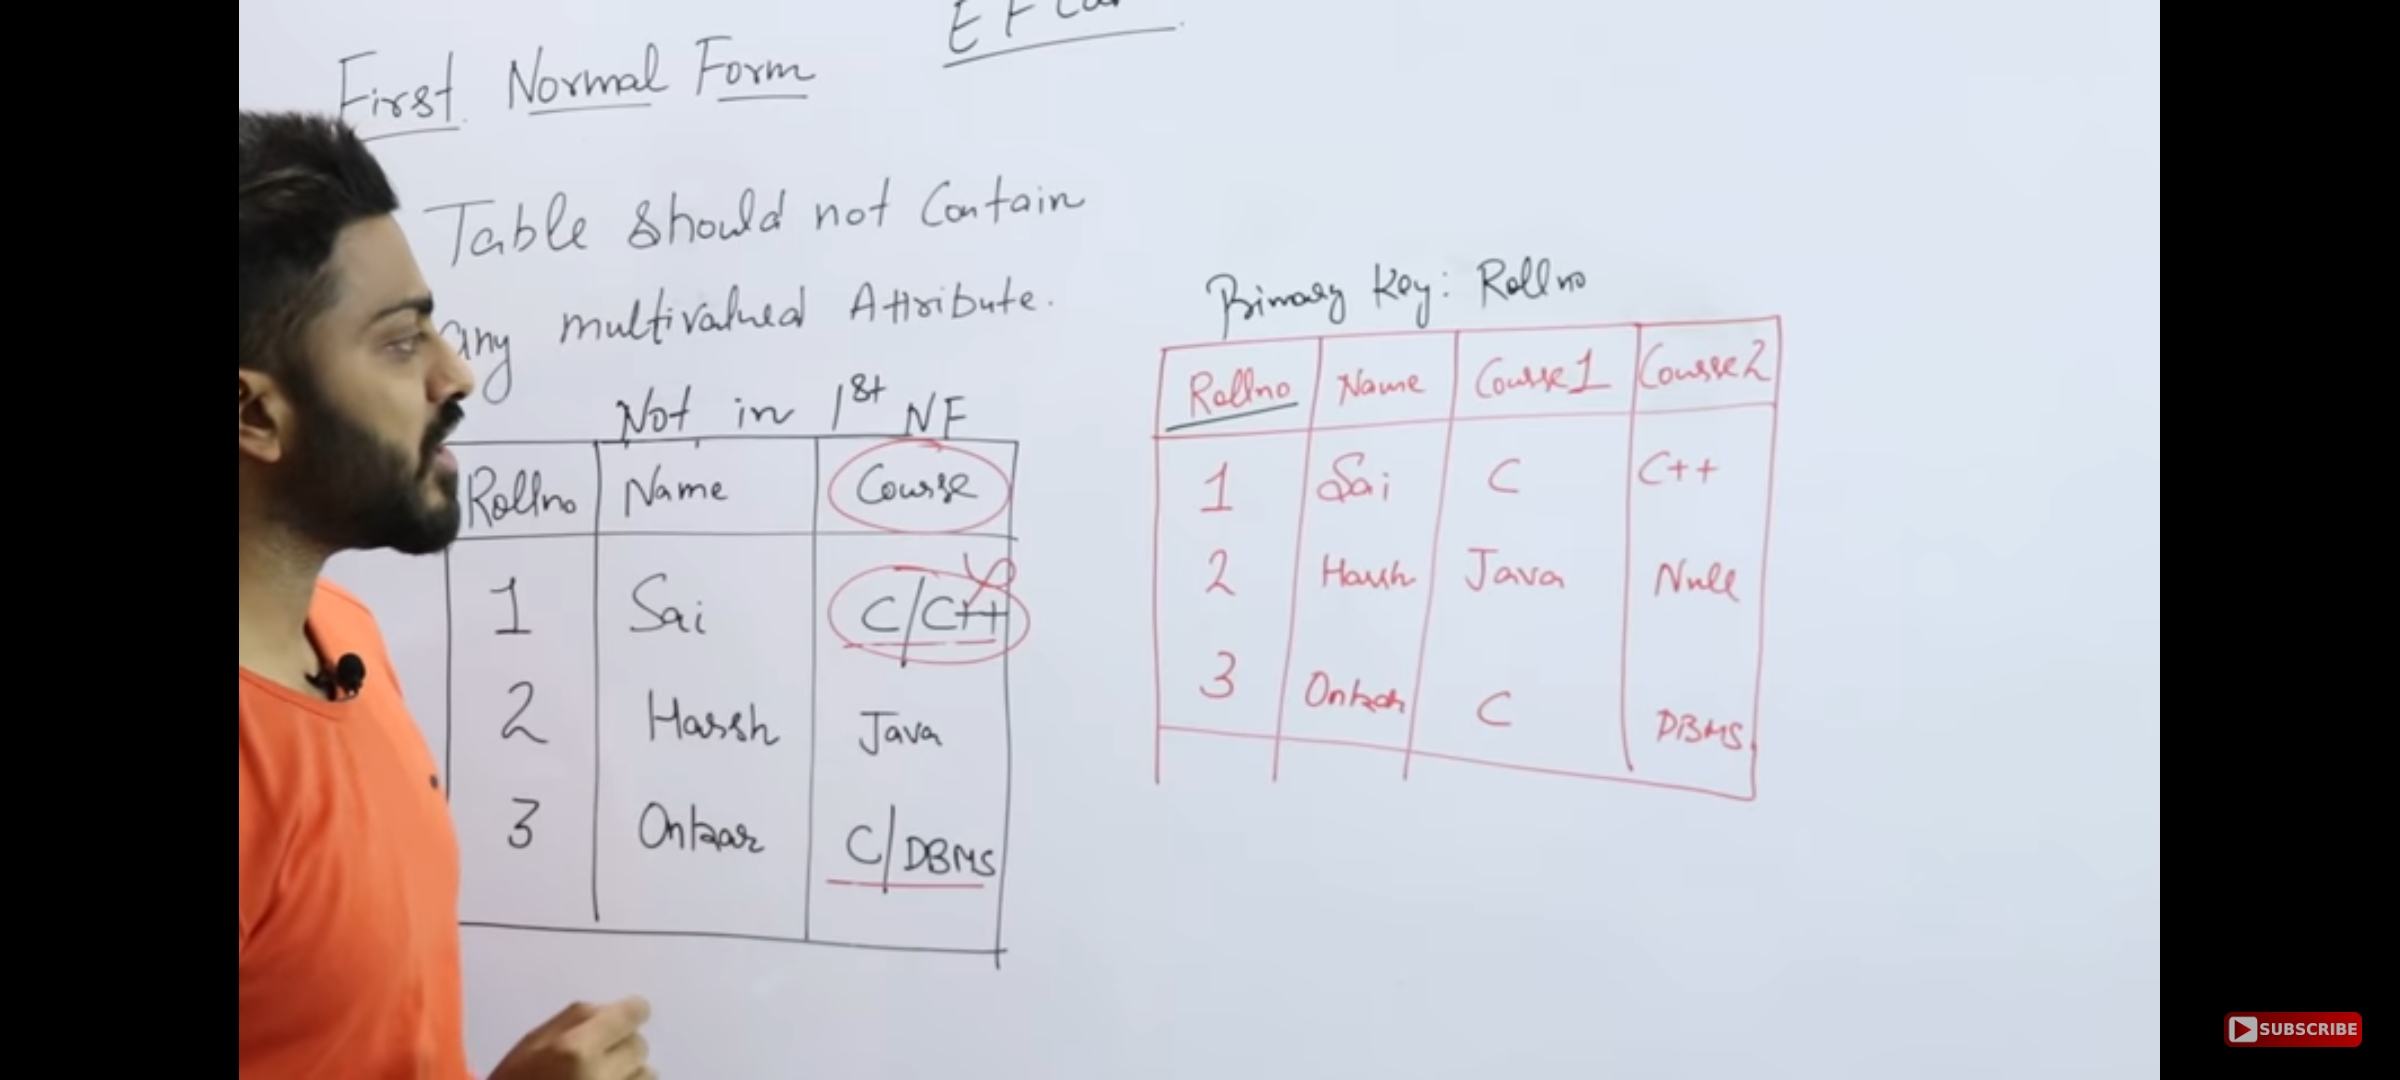 First Normal Form
Table should not Contain
any multivalued Attribute.
Not in 1st NF
Rollno Name Course
1 Sai C/C++
2 Harsh Java
3 Onkar C/DBMS
Primary Key: Rollno
Rollno Name Course1 Course2
1 Sai C C++
2 Harsh Java Null
3 Onkar C DBMS
SUBSCRIBE